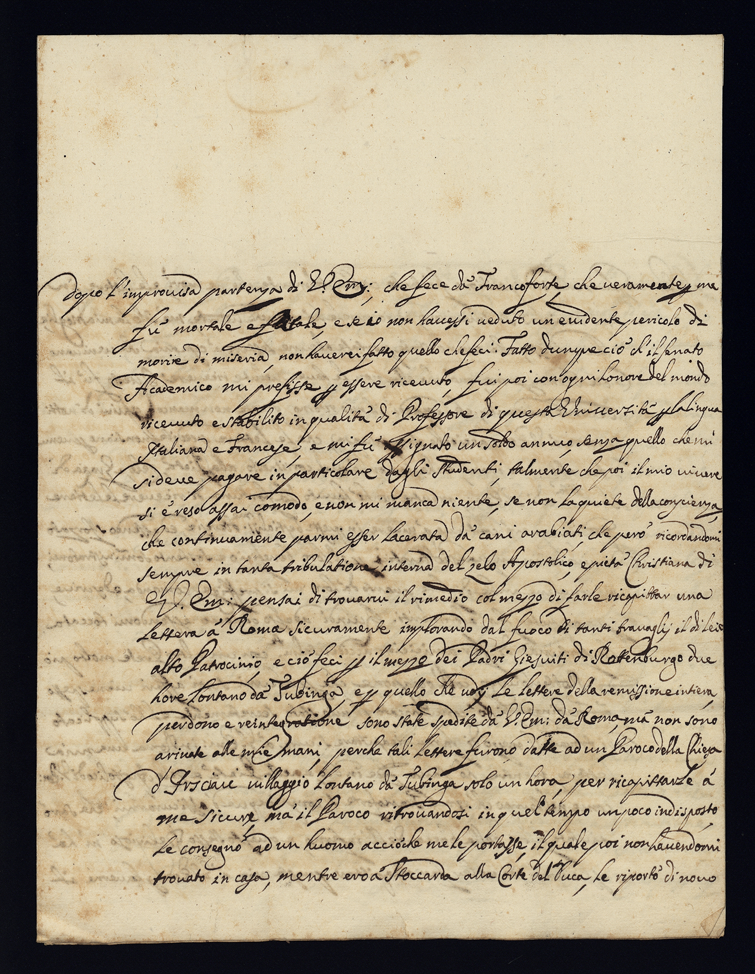 Dopo l'improvisa partenza di V. Em: che fece da Francoforte che veramente p me
fù mortale e fatale, e se io non havessi veduto un evidente pericolo di
morire di miseria, non haverei fatto quello che feci. Fatto dunque ciò ch'il senato
Academico mi prefisse p essere ricevuto, fui poi con ogni honore del mondo
ricevuto e stabilito in qualità di Professore di questa Università p la lingua
Italiana e Francese, e mi fù assignato un soldo annuo, senza quello che mi
si deve pagare in particolare dagli studenti, talmente che poi il mio vivere
si è reso assai comodo, e non mi manca niente, se non la quiete della conscienza,
che continuamente parmi esser lacerata da cani arabiati, che però ricordandomi
sempre in tanta tribulatione interna del zelo Apostolico, e pietà Christiana di
V. Em: pensai di trovarvi il rimedio col mezzo di farle ricapittar una
lettera à Roma sicuramente implorando dal fuoco di tanti travagli il di lei
alto Patrocinio, e ciò feci p il mezzo dei Padri Giesuiti di Rottenburgo due
hore lontano da Tubinga, e p quello che udij le lettere della remissione intiera,
perdono e reintegratione sono state spedite da V. Emi: da Roma, mà non sono
arivate alle mie mani, perche tali lettere furono datte ad un Paroco della Chiesa
d' villaggio lontano da Tubinga solo un hora, per ricapittarle à
me sicure, mà il Paroco ritrovandosi in quel tempo un poco indisposto,
le consegnò ad un huomo acciòche me le portasse, il quale poi non havendomi
trovato in casa, mentre ero à Stoccarda alla Corte del Duca, le riportò di novo